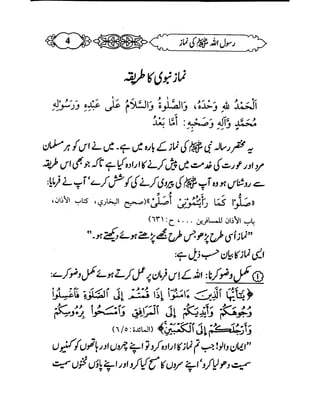 4
رسول اللہ ﷺ کی نماز
نماز نبوی کا طریقہ
اَلْحَمْدُ لِلّٰهِ وَحْدَهُ، وَالصَّلٰوةُ وَالسَّلَامُ عَلٰى عَبْدِهٖ وَرَسُوْلِهٖ
مُحَمَّدٍ وَّآلِهٖ وَصَحْبِهٖ : أَمَّا بَعْدُ
یہ مختصر رسالہ نبی ﷺ کی نماز کے بارہ میں ہے۔ میں نے اس کو ہر مسلمان
مرد اور عورت کی خدمت میں پیش کرنے کا ارادہ کیا ہے تاکہ جو بھی اس طریقہ
سے روشناس ہو وہ آپ ﷺ کی پیروی کرنے کی کوشش کرے‘ آپ نے فرمایا:
«صَلُّوْا كَمَا رَأَيْتُمُوْنِيْ أُصَلِّيْ» (صحيح البخاري، كتاب الأذان،
باب الأذان للمسافرين ...، ح: ٦٣١)
”نماز اُسی طرح پڑھو جس طرح مجھے پڑھتے ہوئے دیکھتے ہو۔“
ایسی نماز کا بیان حسب ذیل ہے:
① مکمل وضو کرنا: اللہ کے اِس فرمان پر عمل کرتے ہوئے مکمل وضو کرے:
﴿يَٰٓأَيُّهَا ٱلَّذِينَ ءَامَنُوٓا۟ إِذَا قُمْتُمْ إِلَى ٱلصَّلَوٰةِ فَٱغْسِلُوا۟
وُجُوهَكُمْ وَأَيْدِيَكُمْ إِلَى ٱلْمَرَافِقِ وَٱمْسَحُوا۟ بِرُءُوسِكُمْ
وَأَرْجُلَكُمْ إِلَى ٱلْكَعْبَيْنِ﴾ (المائدة: ٥/ ٦)
”ایمان والو! جب تم نماز کا ارادہ کرو تو اپنے چہروں اور ہاتھوں کو کہنیوں
سمیت دھو لیا کرو‘ اپنے سروں کا مسح کیا کرو اور اپنے پاؤں ٹخنوں سمیت